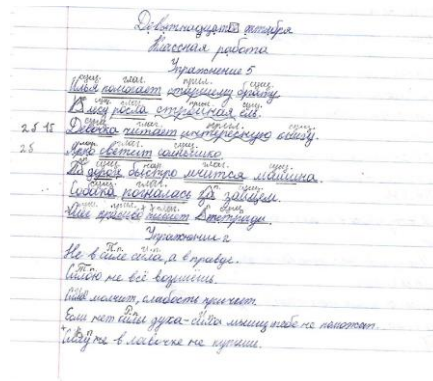 Девятнадцатое октября
Классная работа
Упражнение 5
сущ. глаг. прил. сущ.
Илья помогает старшему брату.
В лесу росла стройная ель.
Девочка читает интересную книгу.
Ярко светит солнышко.
По дороге быстро мчится машина.
Собака погналась за зайцем.
красиво пишет в тетради.
Упражнение 2
Не в силе сила, а в правде.
Силою не всё возьмёшь.
Сила молчит, слабость кричит.
Если нет силы духа - сила мышц тебе не поможет.
Силу же в лавочке не купишь.